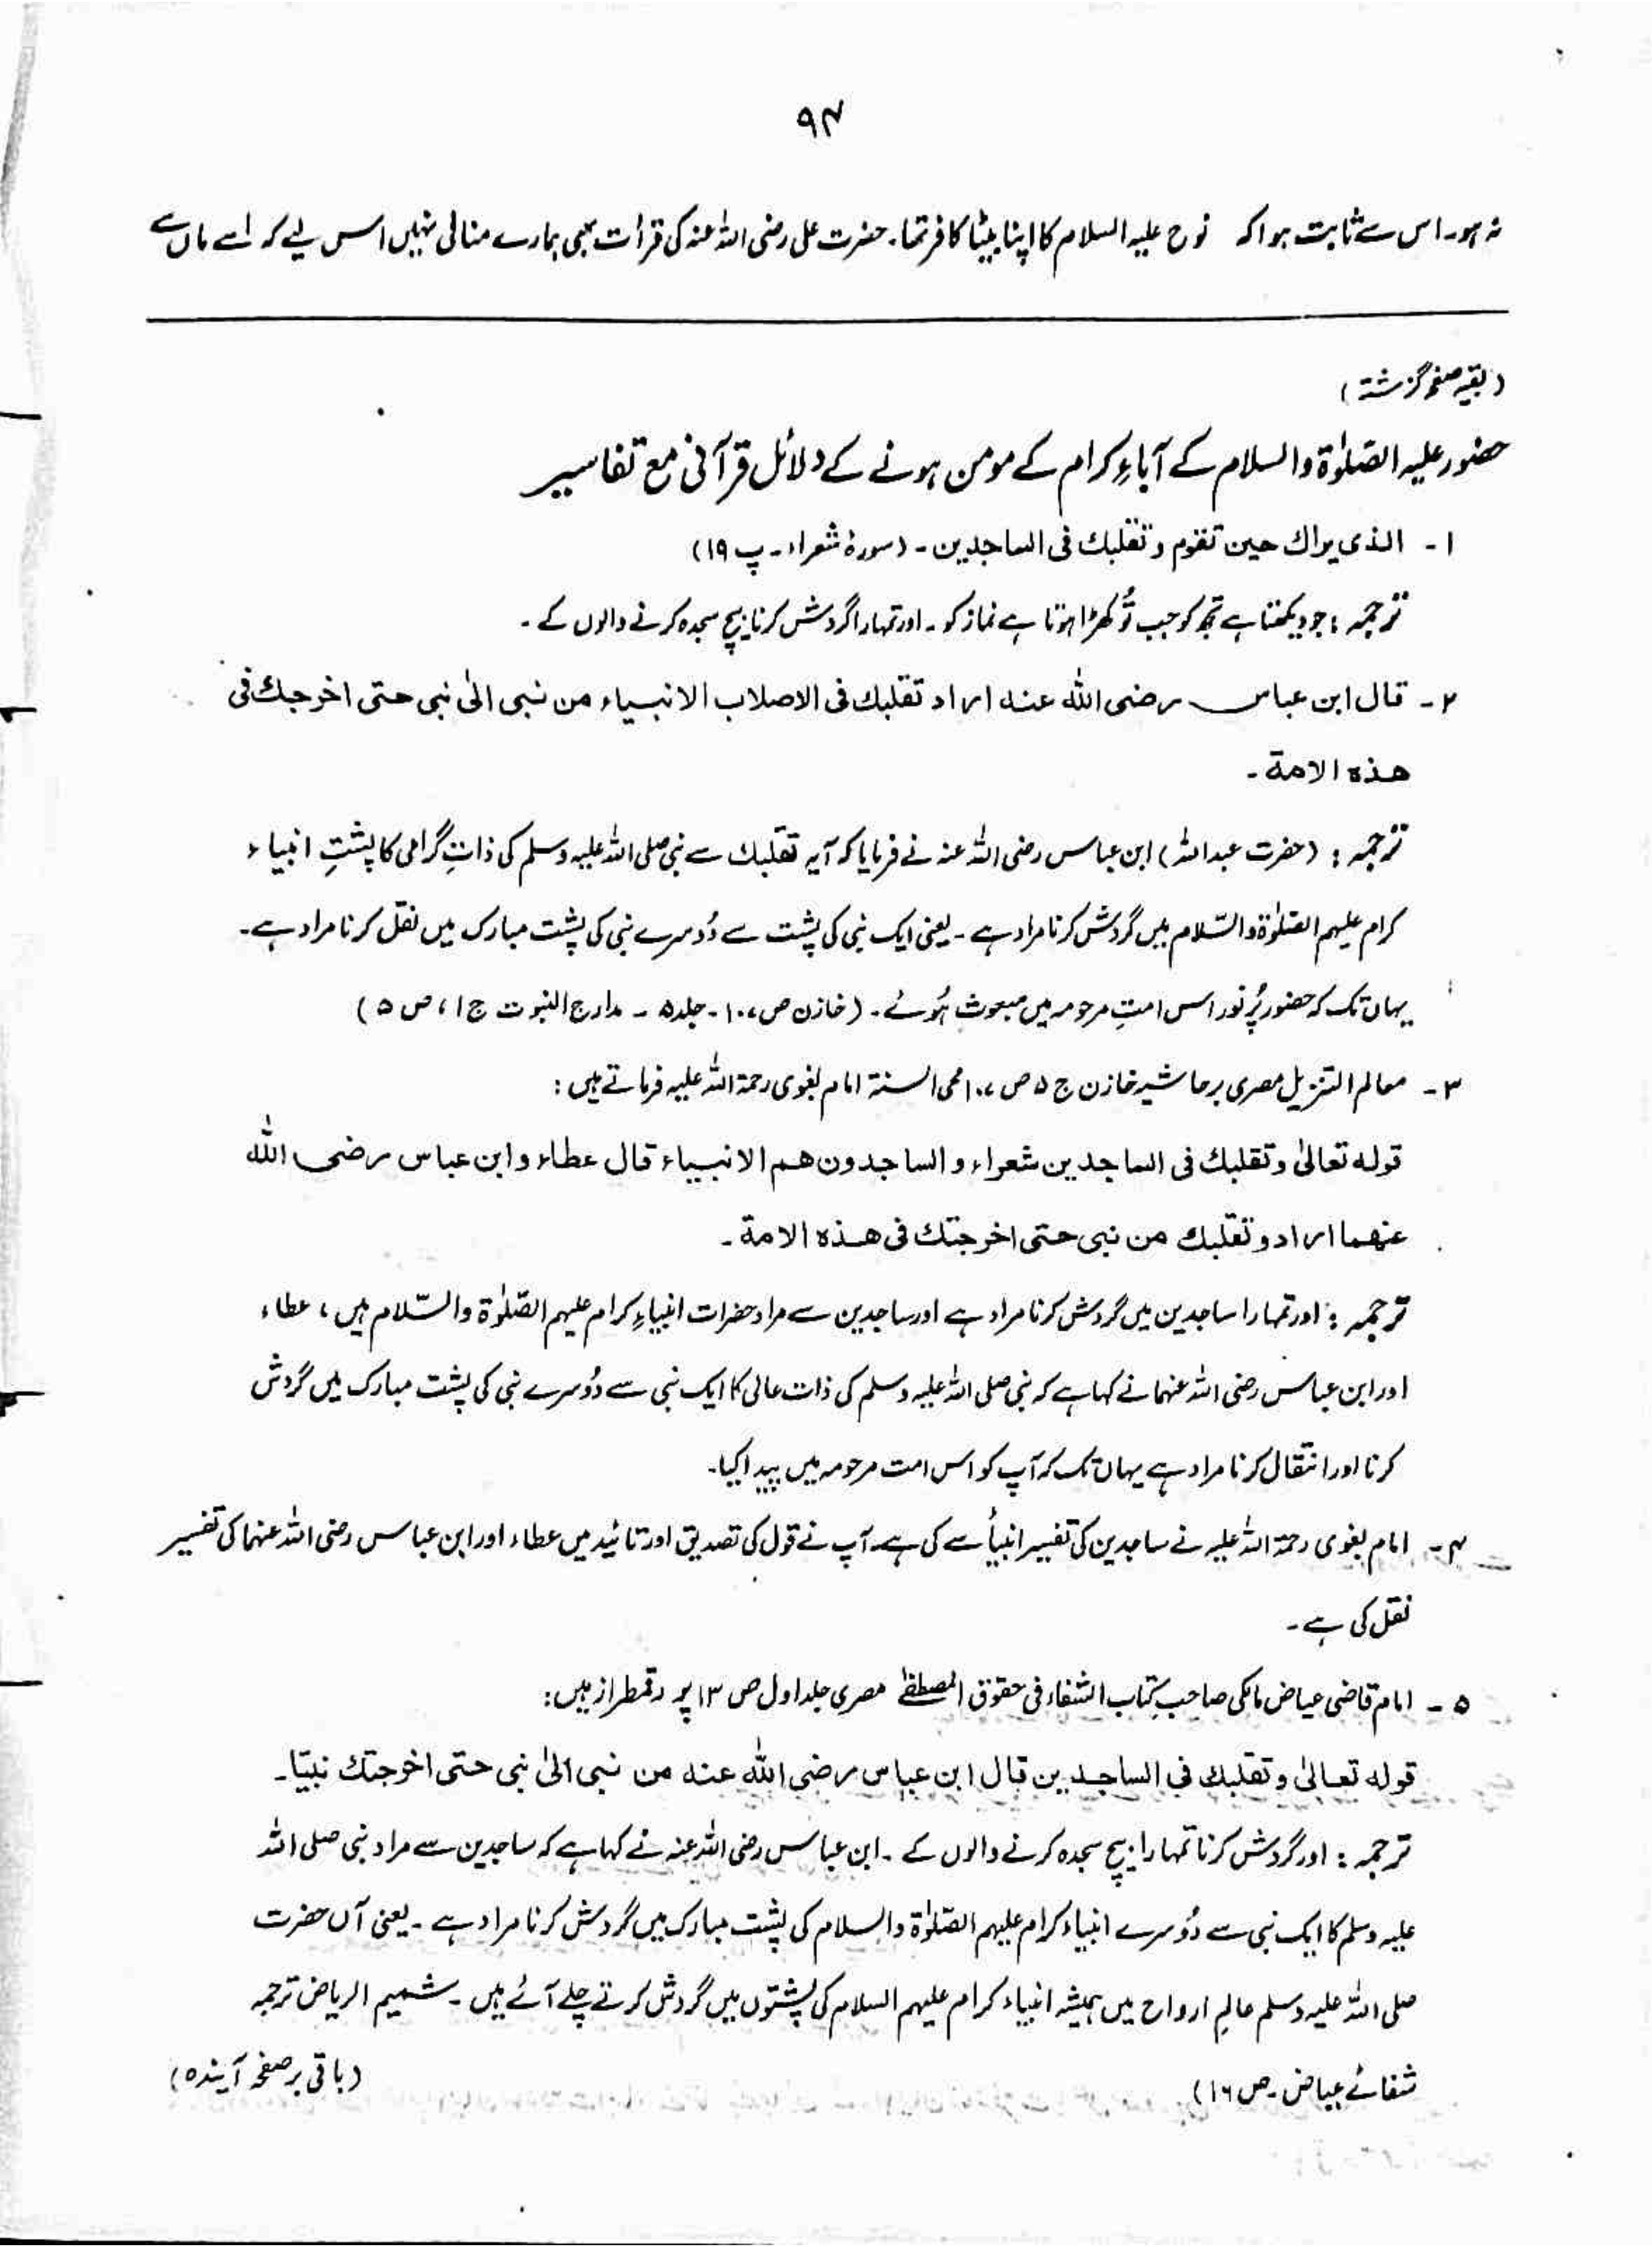 ۹۴
نہ ہو۔ اس سے ثابت ہوا کہ نوح علیہ السلام کا اپنا بیٹا کافر تھا۔ حضرت علی رضی اللہ عنہ کی قرأت بھی ہمارے منافی نہیں اس لیے کہ اسے ماں سے
(بقیہ صفحہ گزشتہ)
حضور علیہ الصلوٰۃ والسلام کے آباءِ کرام کے مومن ہونے کے دلائل قرآنی مع تفاسیر
۱۔ الذی یراك حین تقوم و تقلبك فی الساجدین۔ (سورۂ شعراء۔ پ ۱۹)
ترجمہ: جو دیکھتا ہے تجھ کو جب تُو کھڑا ہوتا ہے نماز کو۔ اور تمہارا گردش کرنا بیچ سجدہ کرنے والوں کے۔
۲۔ قال ابن عباس رضی اللہ عنہ اراد تقلبك فی الاصلاب الانبیاء من نبی الیٰ نبی حتی اخرجك فی
ھذہ الامة۔
ترجمہ: (حضرت عبداللہ) ابن عباس رضی اللہ عنہ نے فرمایا کہ آیہ تقلبك سے نبی صلی اللہ علیہ وسلم کی ذاتِ گرامی کا پشتِ انبیاء
کرام علیہم الصلوٰۃ والسّلام میں گردش کرنا مراد ہے۔ یعنی ایک نبی کی پشت سے دُوسرے نبی کی پشت مبارک میں نقل کرنا مراد ہے۔
یہاں تک کہ حضور پُر نور اس امتِ مرحومہ میں مبعوث ہُوئے۔ (خازن ص ۱۰۷۔ جلد ۵ ۔ مدارج النبوت ج ۱، ص ۵)
۳۔ معالم التنزیل مصری برحاشیہ خازن ج ۵ ص ۱۰۷ محی السنۃ امام بغوی رحمۃ اللہ علیہ فرماتے ہیں:
قولہ تعالیٰ و تقلبك فی الساجدین شعراء و الساجدون ھم الانبیاء قال عطاء و ابن عباس رضی اللہ
عنھما اراد و تقلبك من نبی حتی اخرجتك فی ھذہ الامة۔
ترجمہ: اور تمہارا ساجدین میں گردش کرنا مراد ہے اور ساجدین سے مراد حضرات انبیاءِ کرام علیہم الصّلوٰۃ والسّلام ہیں، عطاء
اور ابن عباس رضی اللہ عنہما نے کہا ہے کہ نبی صلی اللہ علیہ وسلم کی ذات عالی کا ایک نبی سے دُوسرے نبی کی پشت مبارک میں گردش
کرنا اور انتقال کرنا مراد ہے یہاں تک کہ آپ کو اس امت مرحومہ میں پیدا کیا۔
۴۔ امام بغوی رحمۃ اللہ علیہ نے ساجدین کی تفسیر انبیأ سے کی ہے۔ آپ نے قول کی تصدیق اور تائید میں عطاء اور ابن عباس رضی اللہ عنہما کی تفسیر
نقل کی ہے۔
۵۔ امام قاضی عیاض مالکی صاحب کتاب الشفاء فی حقوق المصطفےٰ مصری جلد اول ص ۱۳ پر رقمطراز ہیں:
قولہ تعالیٰ و تقلبك فی الساجدین قال ابن عباس رضی اللہ عنہ من نبی الیٰ نبی حتی اخرجتك نبیّا۔
ترجمہ: اور گردش کرنا تمہارا بیچ سجدہ کرنے والوں کے۔ ابن عباس رضی اللہ عنہ نے کہا ہے کہ ساجدین سے مراد نبی صلی اللہ
علیہ وسلم کا ایک نبی سے دُوسرے انبیاء کرام علیہم الصّلوٰۃ والسلام کی پشت مبارک میں گردش کرنا مراد ہے۔ یعنی آں حضرت
صلی اللہ علیہ وسلم عالمِ ارواح میں ہمیشہ انبیاء کرام علیہم السلام کی پشتوں میں گردش کرتے چلے آئے ہیں۔ شمیم الریاض ترجمہ
شفائے عیاض۔ ص ۱۶)
(باقی بر صفحہ آیندہ)